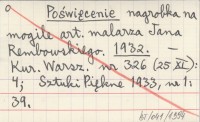 Poświęcenie nagrobka na
mogile art. malarza Jana
Rembowskiego. 1932. —
Kur. Warsz. nr 326 (25 XI):
4; Sztuki Piękne 1933, nr 1:
39.